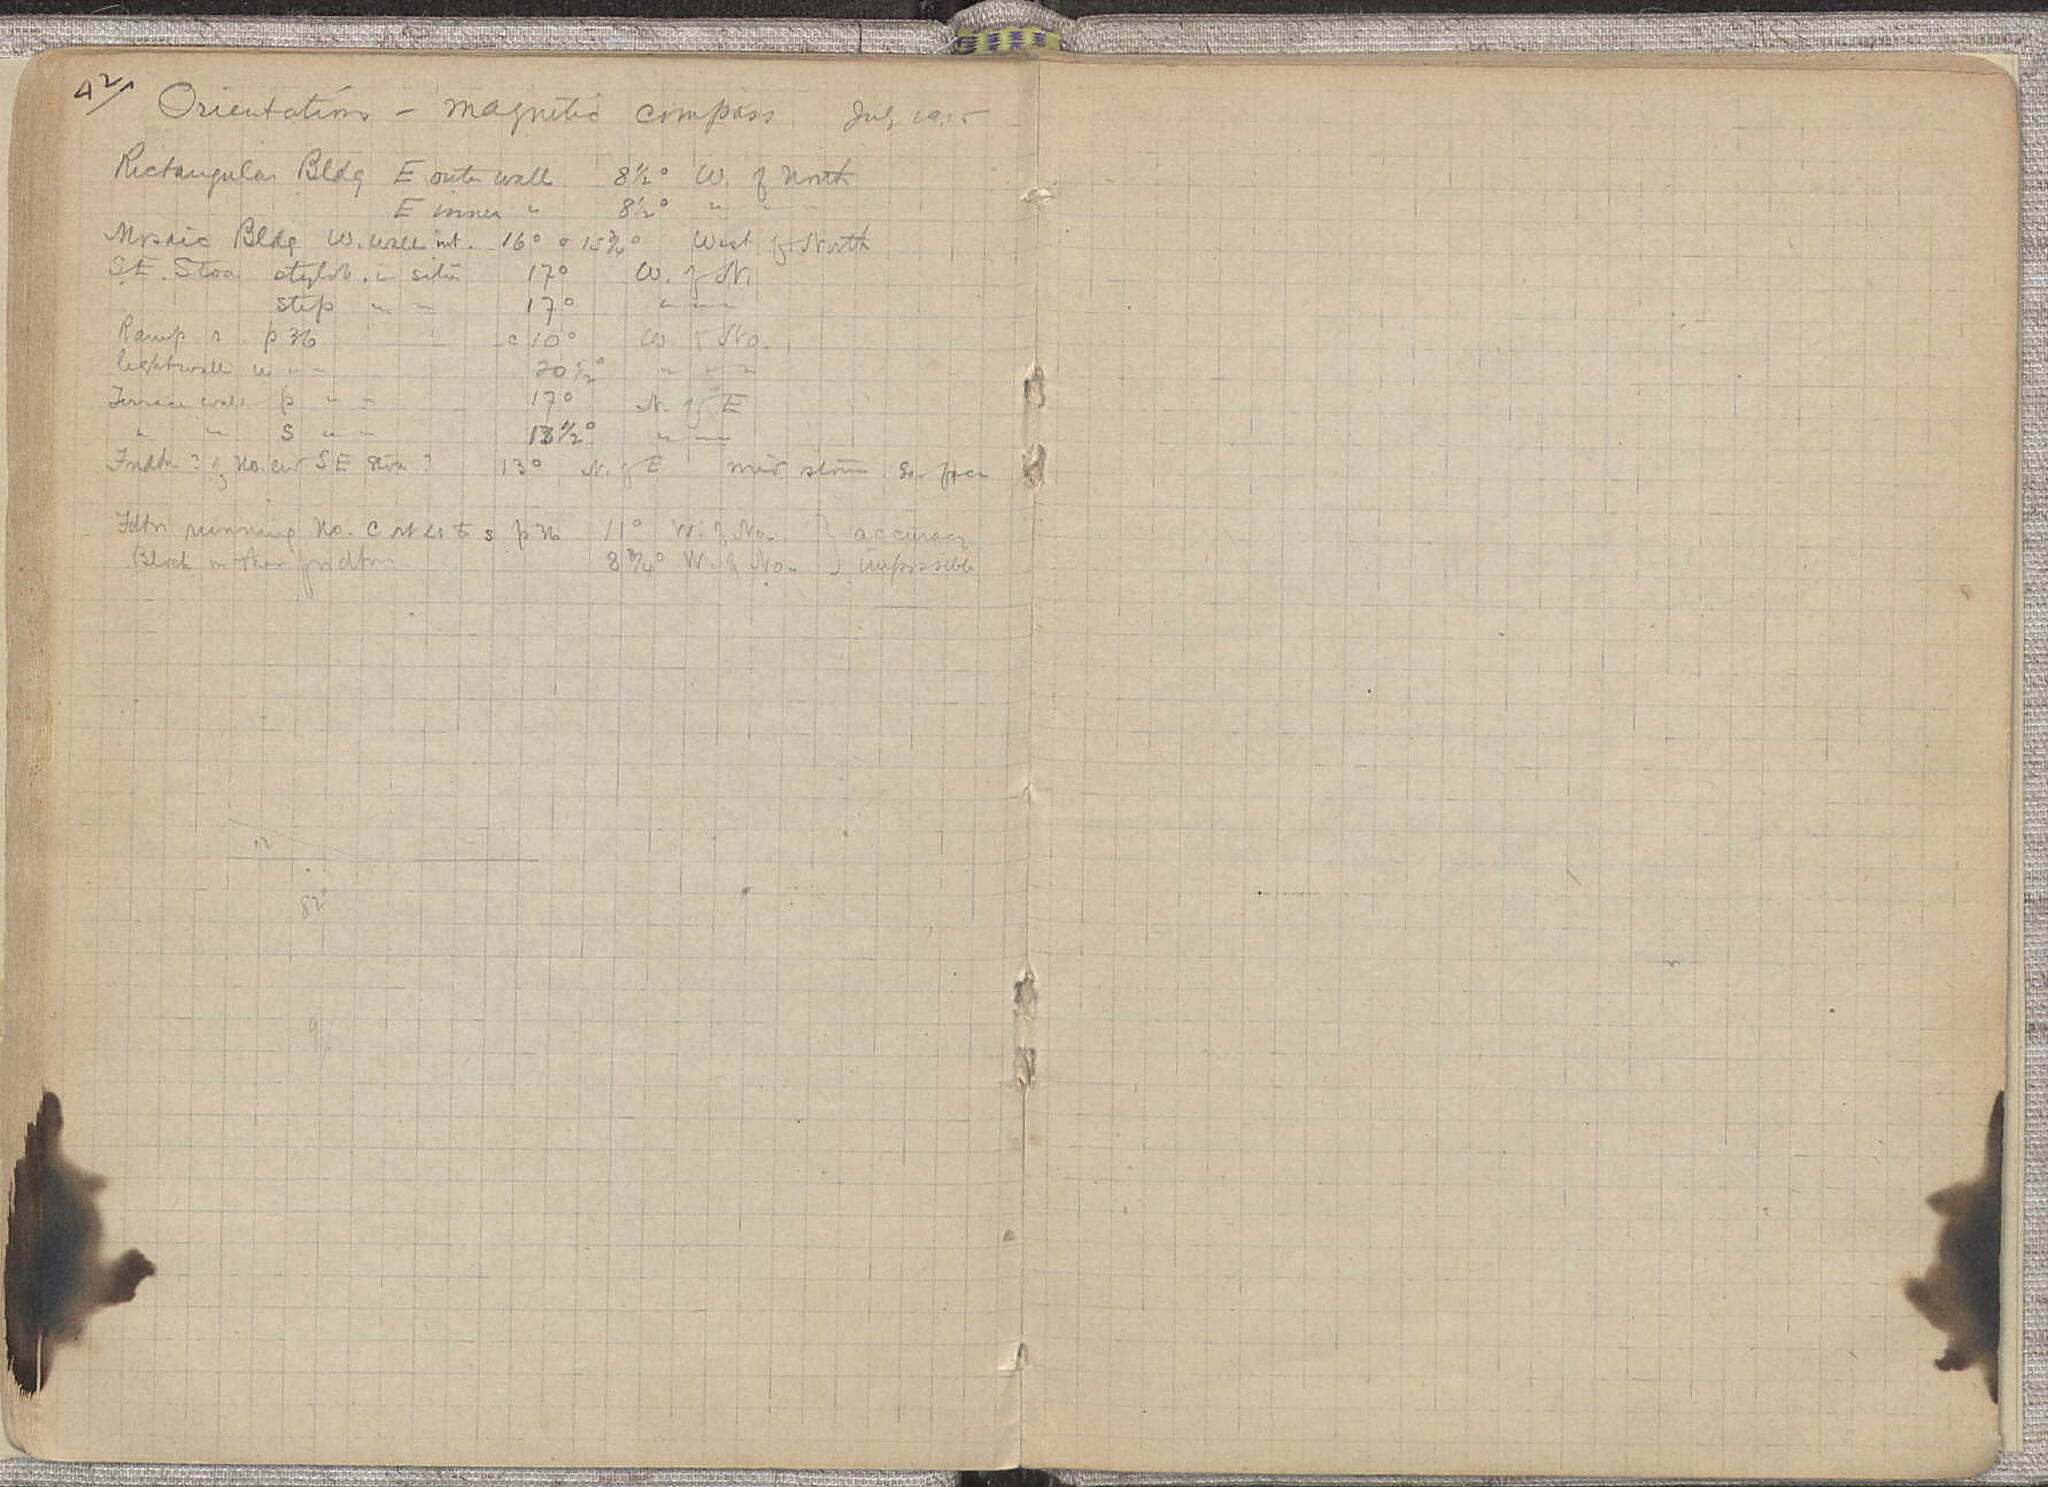 42/
Orientations - magnetic compass July 1915
Rectangular Bldg E outer wall 8½° W. of North
E inner " 8½° " " "
Mosaic Bldg W. wall int. 16° & 15¾° West of North
S.E. Stoa stylob. in situ 17° W. of N.
step " " 17° " " "
Ramp p 36 c 10° W of No.
20½° " " "
Terrace wall p " " 17° N. of E
" " S " " 13½° " " "
Fndtn ? of No. end S E Stoa ? 13° N. of E So. face
Fdtn running No. S p 36 11° W. of No. } accuracy
Block in other fndtn 8¾° W. of No. } impossible
12
82°
9